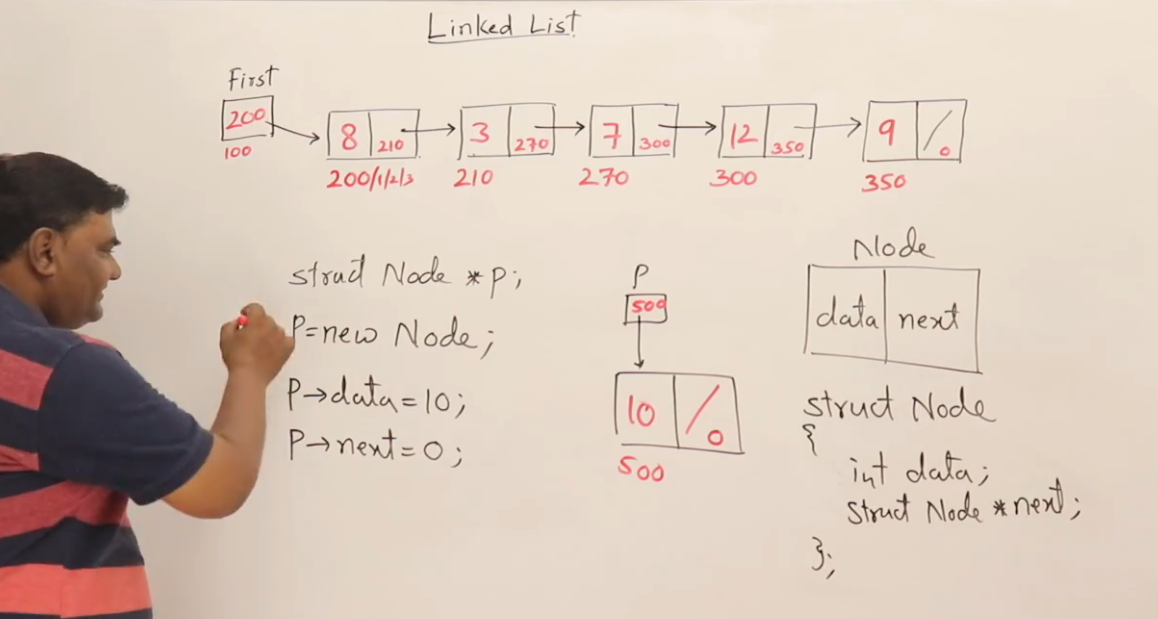 Linked List
First
200
100
8 210
200/1/2/3
3 270
210
7 300
270
12 350
300
9 / 0
350
struct Node *p;
P=new Node;
P→data=10;
P→next=0;
P
500
10 / 0
500
Node
data next
struct Node
{
int data;
struct Node *next;
};